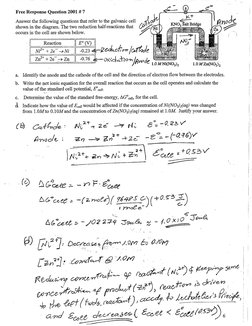 Free Response Question 2001 # 7
Answer the following questions that refer to the galvanic cell
shown in the diagram. The two reduction half-reactions that
occurs in the cell are shown below.
Reaction E° (V)
Ni²⁺ + 2e⁻ → Ni -0.23 reduction/cathode
Zn²⁺ + 2e⁻ → Zn -0.76 oxidation/anode
Cathode
Anode
KNO₃ Salt bridge
1.0 M Ni(NO₃)₂
1.0 M Zn(NO₃)₂
a. Identify the anode and the cathode of the cell and the direction of electron flow between the electrodes.
b. Write the net ionic equation for the overall reaction that occurs as the cell operates and calculate the
value of the standard cell potential, E°cell.
c. Determine the value of the standard free energy, ΔG°cell for the cell.
d. Indicate how the value of Ecell would be affected if the concentration of Ni(NO₃)₂(aq) was changed
from 1.0M to 0.10M and the concentration of Zn(NO₃)₂(aq) remained at 1.0M. Justify your answer.
(b) Cathode: Ni²⁺ + 2e⁻ → Ni E° = -0.23V
Anode: Zn → Zn²⁺ + 2e⁻ -E° = -(-0.76)V
Ni²⁺ + Zn → Ni + Zn²⁺ E°cell = 0.53V
(c) ΔG°cell = -nFE°cell
ΔG°cell = -(2mole)(96485 C/1 mole)(+0.53 J/C)
ΔG°cell = -102274 Joule ≈ -1.0x10⁵ Joule
(d) [Ni²⁺]: Decreases from 1.0M to 0.10M
[Zn²⁺]: constant @ 1.0M
Reducing concentration of reactant (Ni²⁺) & keeping same
concentration of product (Zn²⁺), reaction is driven
to the left (towards reactant), accordg to Le Chatelier's Principle,
and Ecell decreases (Ecell < E°cell (0.53V)).